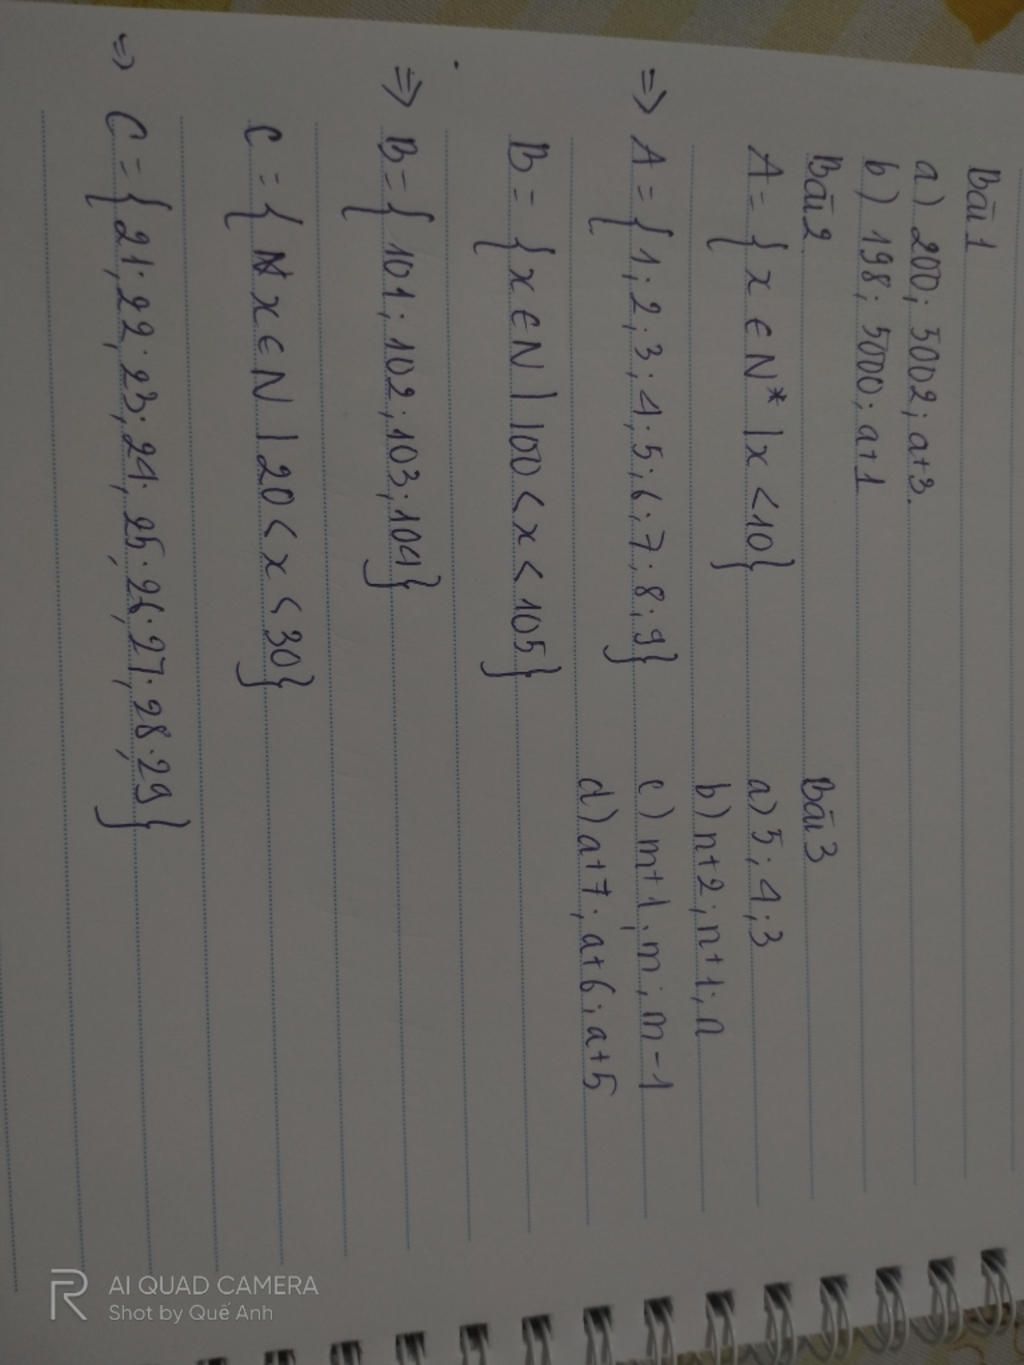 Bài 1
a) 200; 5002; a+3.
b) 198; 5000; a+1
Bài 2
A = { x ∈ N* | x < 10}
=> A = { 1; 2; 3; 4; 5; 6; 7; 8; 9}
B = { x ∈ N | 100 < x < 105}
=> B = { 101; 102; 103; 104}
C = { x ∈ N | 20 < x < 30}
=> C = { 21; 22; 23; 24; 25; 26; 27; 28; 29}
Bài 3
a) 5; 4; 3
b) n+2; n+1; n
c) m+1; m; m-1
d) a+7; a+6; a+5
AI QUAD CAMERA
Shot by Quế Anh